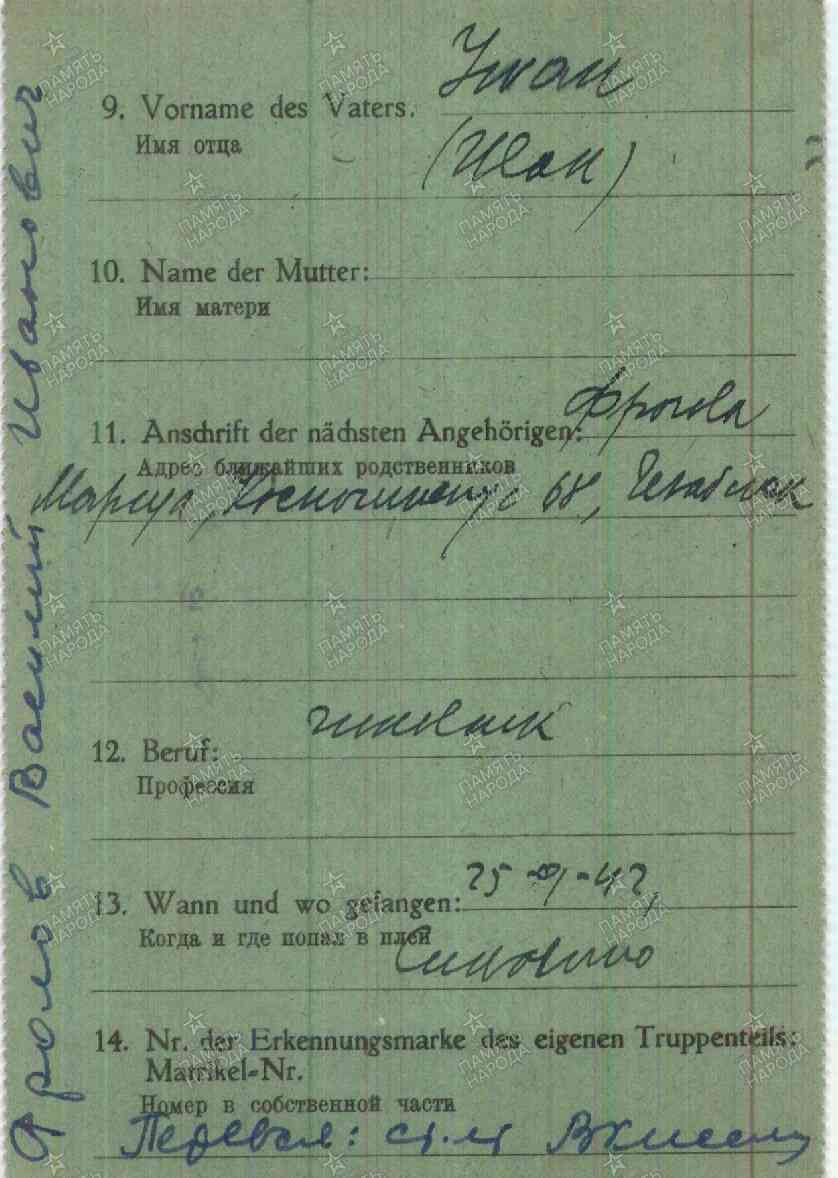 Фролов Василий Иванович
9. Vorname des Vaters.
Имя отца
Иван
(Иван)
10. Name der Mutter:
Имя матери
11. Anschrift der nächsten Angehörigen: Фролова
Адрес ближайших родственников
Мария, 68,
12. Beruf:
Профессия
13. Wann und wo gefangen:
Когда и где попал в плен
Синявино
14. Nr. der Erkennungsmarke des eigenen Truppenteils:
Matrikel-Nr.
Номер в собственной части
Перевел:
ПАМЯТЬ НАРОДА